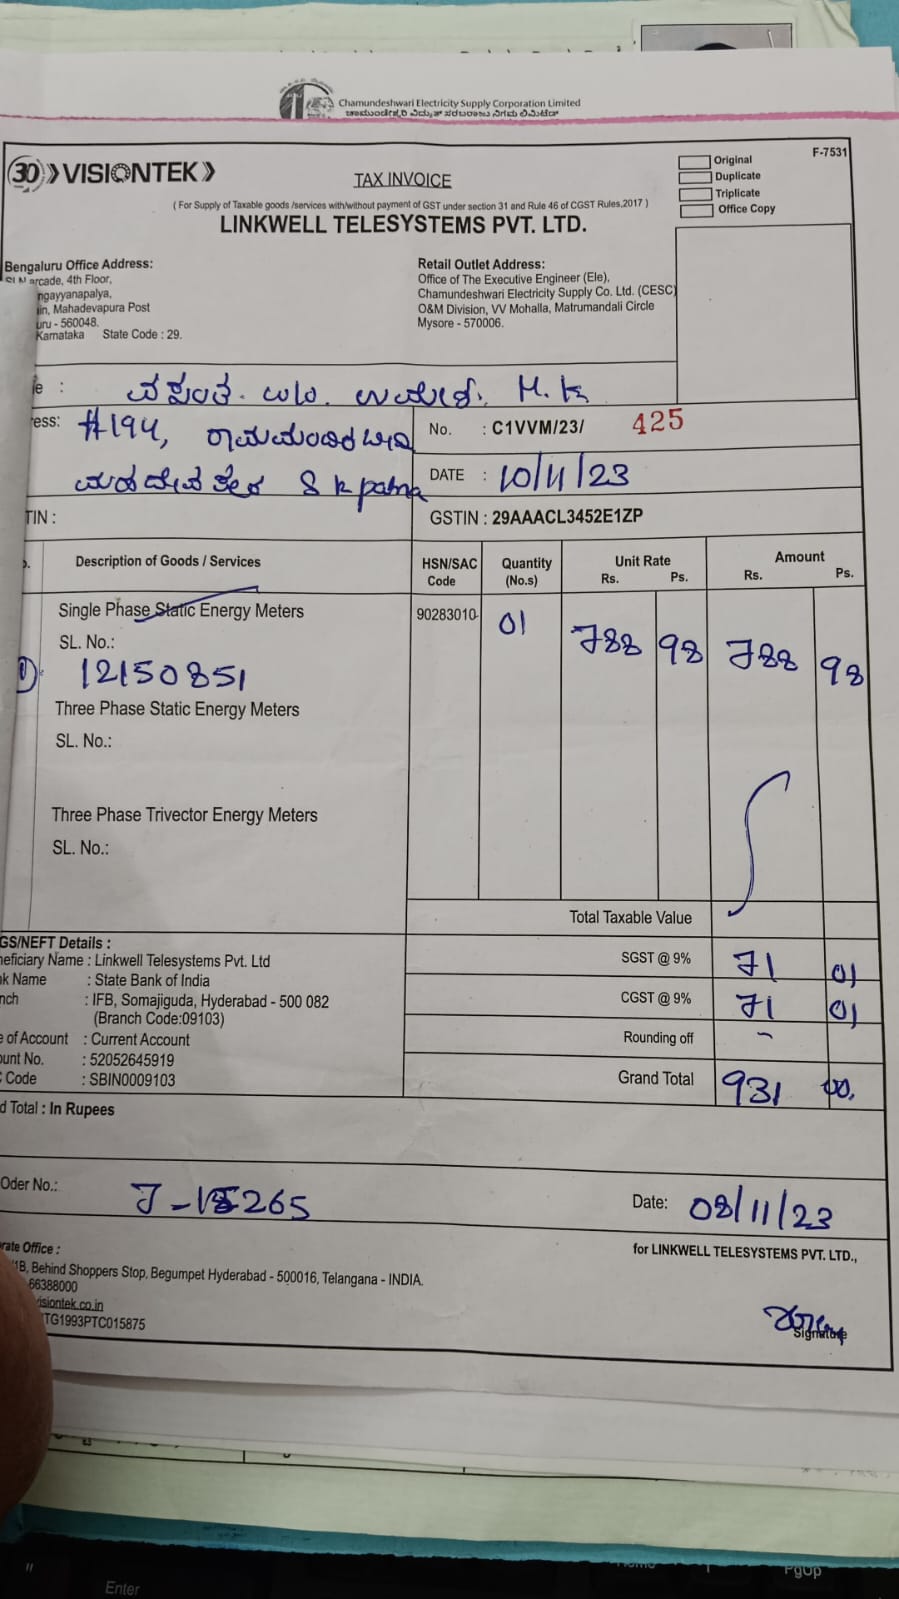 Chamundeshwari Electricity Supply Corporation Limited
ಚಾಮುಂಡೇಶ್ವರಿ ವಿದ್ಯುತ್ ಸರಬರಾಜು ನಿಗಮ ಲಿಮಿಟೆಡ್
F-7531
30 VISIONTEK
TAX INVOICE
Original
Duplicate
Triplicate
Office Copy
( For Supply of Taxable goods /services with/without payment of GST under section 31 and Rule 46 of CGST Rules,2017 )
LINKWELL TELESYSTEMS PVT. LTD.
Bengaluru Office Address:
arcade, 4th Floor,
ngayyanapalya,
in, Mahadevapura Post
uru - 560048.
Karnataka State Code : 29.
Retail Outlet Address:
Office of The Executive Engineer (Ele),
Chamundeshwari Electricity Supply Co. Ltd. (CESC)
O&M Division, VV Mohalla, Matrumandali Circle
Mysore - 570006.
e : M.K
ress: #194,
S k patna
No. : C1VVM/23/ 425
DATE : 10/11/23
TIN :
GSTIN : 29AAACL3452E1ZP
Description of Goods / Services
HSN/SAC Code
Quantity (No.s)
Unit Rate
Rs. Ps.
Amount
Rs. Ps.
Single Phase Static Energy Meters 90283010 01 788 98 788 98
SL. No.:
1) 12150851
Three Phase Static Energy Meters
SL. No.:
Three Phase Trivector Energy Meters
SL. No.:
Total Taxable Value
GS/NEFT Details :
neficiary Name : Linkwell Telesystems Pvt. Ltd
nk Name : State Bank of India
nch : IFB, Somajiguda, Hyderabad - 500 082
(Branch Code:09103)
e of Account : Current Account
ount No. : 52052645919
Code : SBIN0009103
SGST @ 9% 71 01
CGST @ 9% 71 01
Rounding off -
Grand Total 931 00.
d Total : In Rupees
Oder No.:
Date: 08/11/23
rate Office :
1B, Behind Shoppers Stop, Begumpet Hyderabad - 500016, Telangana - INDIA.
66388000
visiontek.co.in
TG1993PTC015875
for LINKWELL TELESYSTEMS PVT. LTD.,
Signature
Enter
PgUp